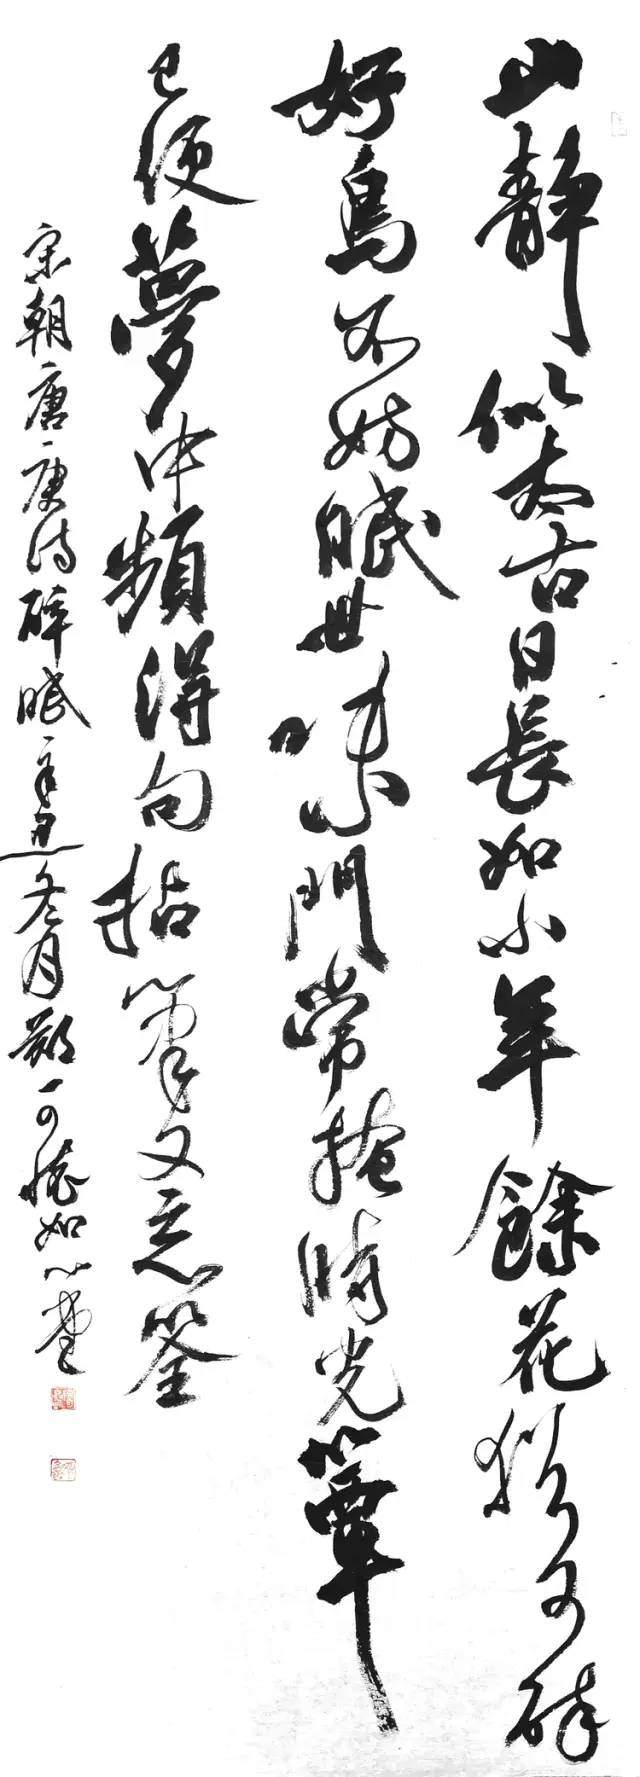 山静似太古日長如小年餘花猶可醉
好鳥不妨眠世味門常掩時光簟
已便夢中頻得句拈筆又忘筌
宋朝唐庚詩醉眠辛丑冬月鄭一可 如心堂